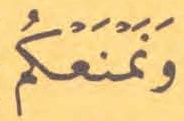 وَنَمْنَعْكُم